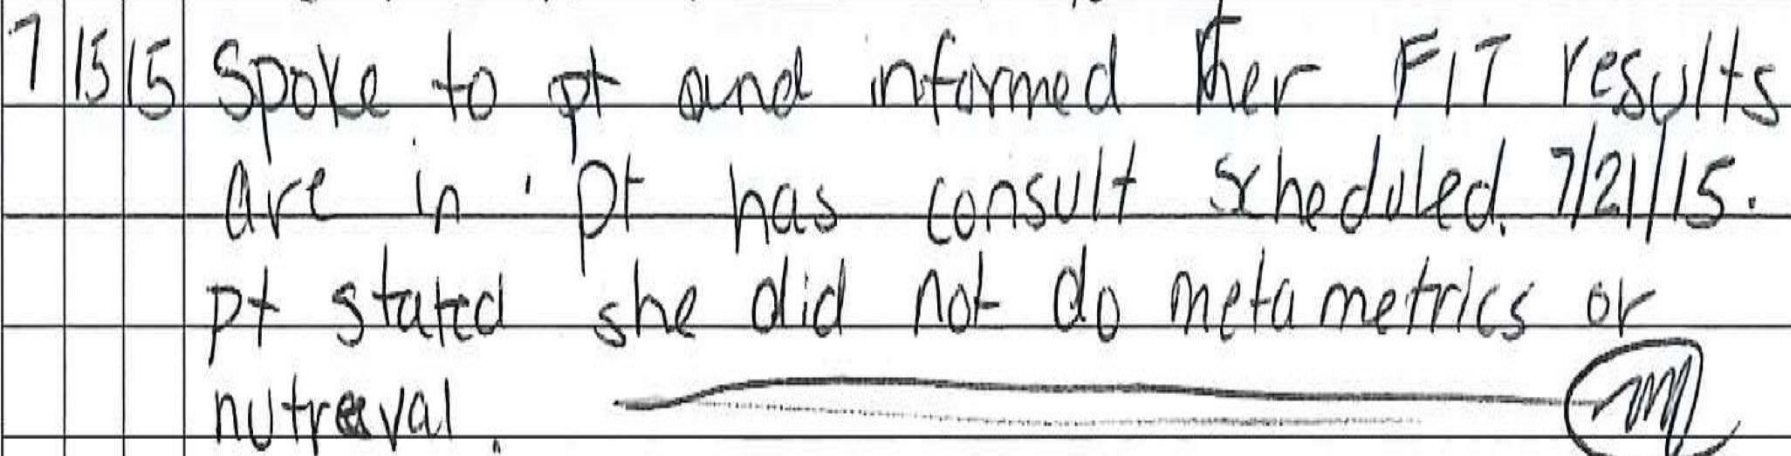 7 15 15 Spoke to pt and informed her FIT results
are in. Pt has consult scheduled. 7/21/15.
pt stated she did not do metametrics or
nutreeval.